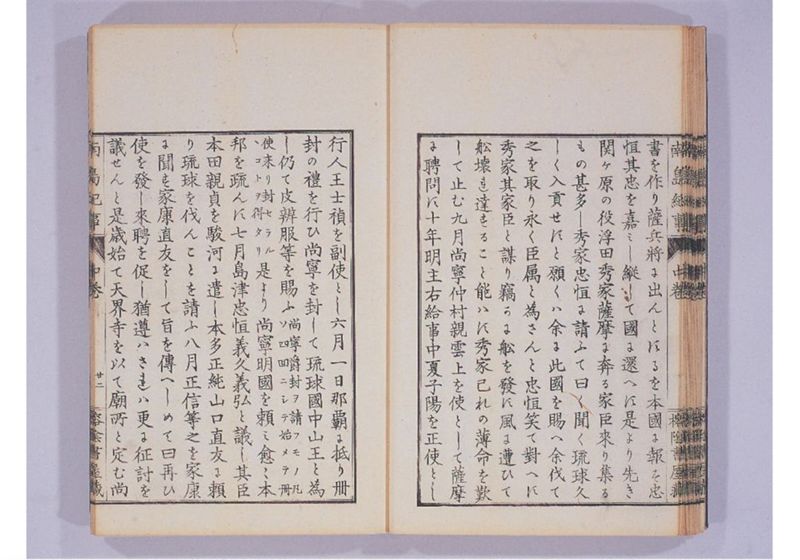 南島紀事　中巻
書を作り薩兵將に出んとするを本國に報す忠
恒其忠を嘉みし縦して國に還へす是より先き
関ヶ原の役浮田秀家薩摩に奔る家臣來り集る
もの甚多し秀家忠恒に請ふて曰く聞く琉球久
しく入貢せすと願くハ余に此國を賜へ余伐て
之を取り永く臣属と為さんと忠恒笑て對へす
秀家其家臣と謀り竊かに舩を發す風に遭ひて
舩壊れ達すること能ハす秀家己れの薄命を歎
して止む九月尚寧仲村親雲上を使として薩摩
に聘問す十年明主右給事中夏子陽を正使とし
行人王士禎を副使とし六月一日那覇に抵り冊
封の禮を行ひ尚寧を封して琉球國中山王と為
し仍て皮辨服等を賜ふ尚寧爵封ヲ請フモノ凡ソ四回ニシテ始メテ冊
使来リ封セラルヽコトヲ得タリ是より尚寧明國を頼ミ愈々本
邦を疏んす七月島津忠恒義久義弘と議し其臣
本田親貞を駿河に遣し本多正純山口直友に頼
り琉球を伐んことを請ふ八月正信等之を家康
に聞す家康直友をして旨を傳へしめて曰再ひ
使を發し來聘を促し猶遵ハされハ更に征討を
議せんと是歳始て天界寺を以て廟所と定む尚
南島紀事　中巻　廿二